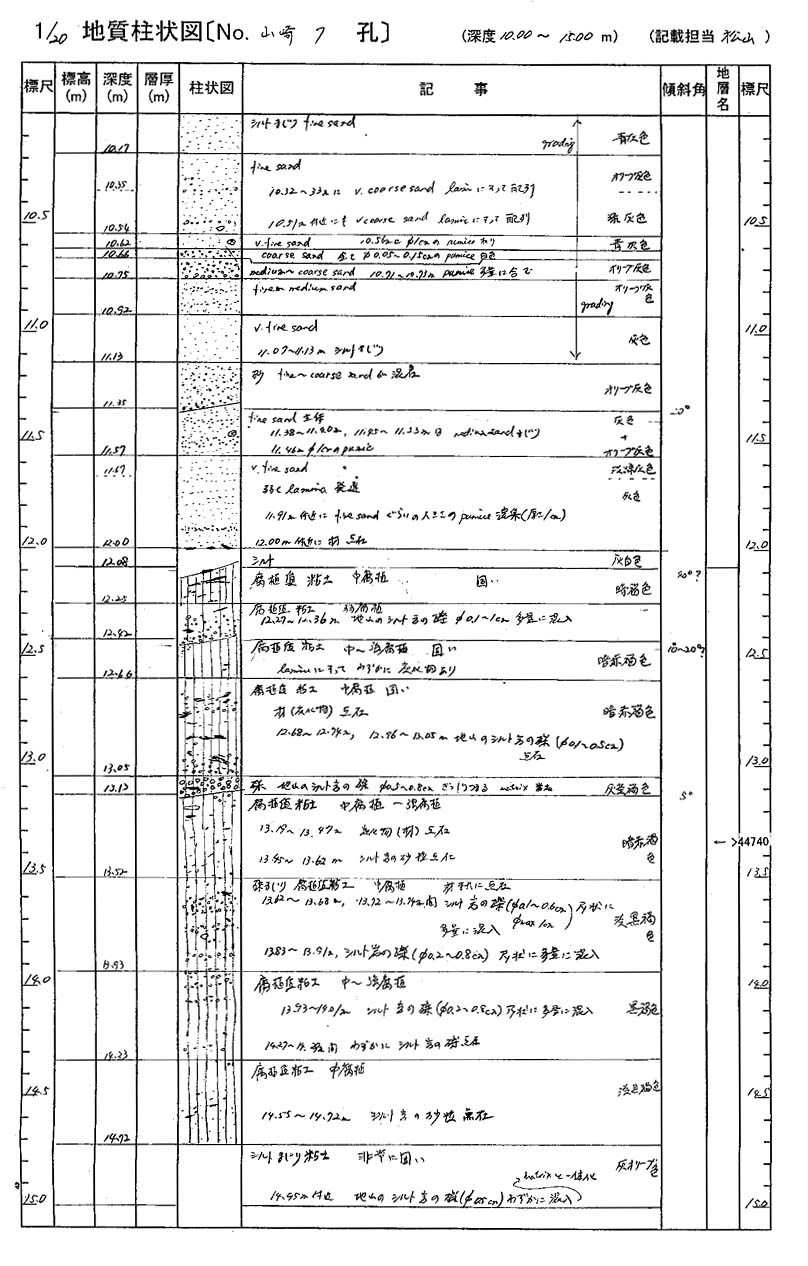 1/20 地質柱状図〔No. 山崎 7 孔〕 (深度 10.00 ~ 15.00 m) (記載担当 松山 )
標尺 標高(m) 深度(m) 層厚(m) 柱状図 記 事 傾斜角 地層名 標尺
シルトまじり fine sand
grading 青灰色
10.17
fine sand
オリーブ灰色
10.35
10.32~33mに v. coarse sand laminaにそって配列
10.5
10.51m付近にも v coarse sand laminaにそって配列
灰色
10.5
10.54
v. fine sand 10.56mにφ1cmのpumiceあり 青灰色
10.62
coarse sand 含むφ0.05~0.15cmのpumice白色
10.66
medium~coarse sand 10.71~10.73m pumice 多量に含む オリーブ灰色
10.75
fine~medium sand オリーブ灰色
grading
10.92
11.0
v. fine sand
11.0
灰色
11.07~11.13m シルトまじり
11.13
砂 fine~coarse sandが混在
オリーブ灰色
11.35
fine sand 主体 灰色
11.38~11.40m, 11.45~11.53mは medium sandまじり
11.5
11.5
11.46m φ1cmのpumice オリーブ灰色
11.57
v. fine sand
11.67
弱く lamina 発達
灰色
11.91m付近に fine sandぐらいの大きさのpumice濃集(厚さ1cm)
12.00m付近に 材 点在
12.0
12.00
12.0
シルト 灰白色
12.08
腐植質 粘土 中腐植 固い
暗褐色
12.25
腐植質粘土 弱腐植
12.27~12.36m 地山のシルト岩の礫 φ0.1~1cm 多量に混入
12.42
12.5
腐植質 粘土 中~強腐植 固い
10~20°
12.5
laminaにそって わずかに 炭化物あり
暗赤褐色
12.66
腐植質 粘土 中腐植 固い
材(炭化物)点在
暗赤褐色
12.68~12.74m, 12.96~13.05m 地山のシルト岩の礫(φ0.1~0.5cm)
点在
13.0
13.0
13.05
礫 地山のシルト岩の礫 φ0.5~0.8cm ぎっしりつまる matrix
灰黄褐色
13.13
5°
腐植質粘土 中腐植~強腐植
13.19~13.47m 炭化物(材)点在
暗赤褐色
← >44740
13.45~13.62m シルト岩の砂粒点在
13.5
13.52
13.5
礫まじり 腐植質粘土 中腐植 材 まれに点在
13.62~13.68m, 13.72~13.74m間 シルト岩の礫(φ0.1~0.6cm φmax 1cm)層状に
多量に混入
13.83~13.91m, シルト岩の礫(φ0.2~0.8cm)層状に多量に混入
13.93
14.0
腐植質粘土 中~強腐植
14.0
13.93~14.01m シルト岩の礫(φ0.2~0.8cm)層状に多量に混入
黒褐色
わずかに シルト岩の礫点在
14.33
腐植質粘土 中腐植
14.5
14.5
14.55~14.72m シルト岩の砂粒 点在
14.72
シルトまじり粘土 非常に固い
灰オリーブ色
matrixと一体化
14.95m付近 地山のシルト岩の礫(φ0.5cm)わずかに混入
15.0
15.0